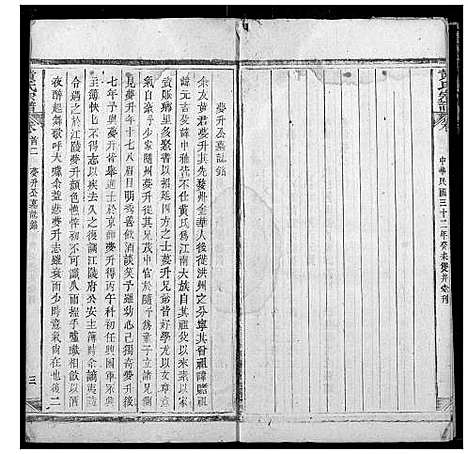 黃氏宗譜 卷
中華民國三十二年癸未雙井宗刊
夢升公墓誌銘
余友黃君夢升其先婺州金華人後徙洪州之分寧其曾祖諱贍祖
諱元吉父諱中雅不仕黃氏為江南大族自其祖父以來樂以家
貲賑鄉里多聚四方之士夢升兄弟皆好學尤以文章意
氣自豪予少隨州夢升從其兄茂宗官於隨予為童子立諸兄側
見夢升年十七八眉目明秀善飲酒談笑予雖幼心已獨奇夢升後
七年予與夢升皆舉進士於京師夢升得丙科初任興國軍永興
主簿怏怏不得志以疾去久之復調江陵府公安主簿時余謫夷陵
令遇之於江陵夢升顏色憔悴初不可識久而握手噓嚱相飲以酒
夜醉起舞歌呼大噱余益悲夢升志雖衰而少時意氣尚在也後二
黃氏宗譜 卷首二 夢升公墓誌銘 三